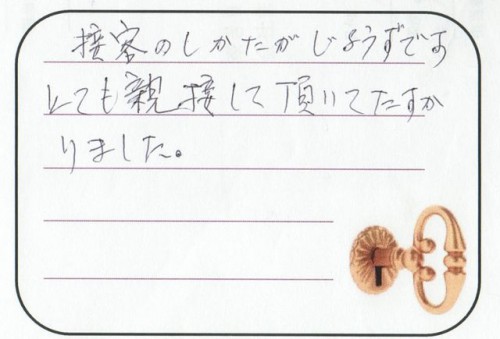 接客のしかたがじようずです
とても親接して頂いてたすか
りました。